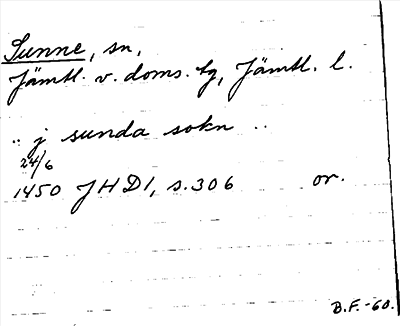 Sunne, sn,
Jämtl. v. doms. tg, Jämtl. l.
.. j sunda sokn ..
24/6
1450 JHD1, s.306 or.
B.F.-60.